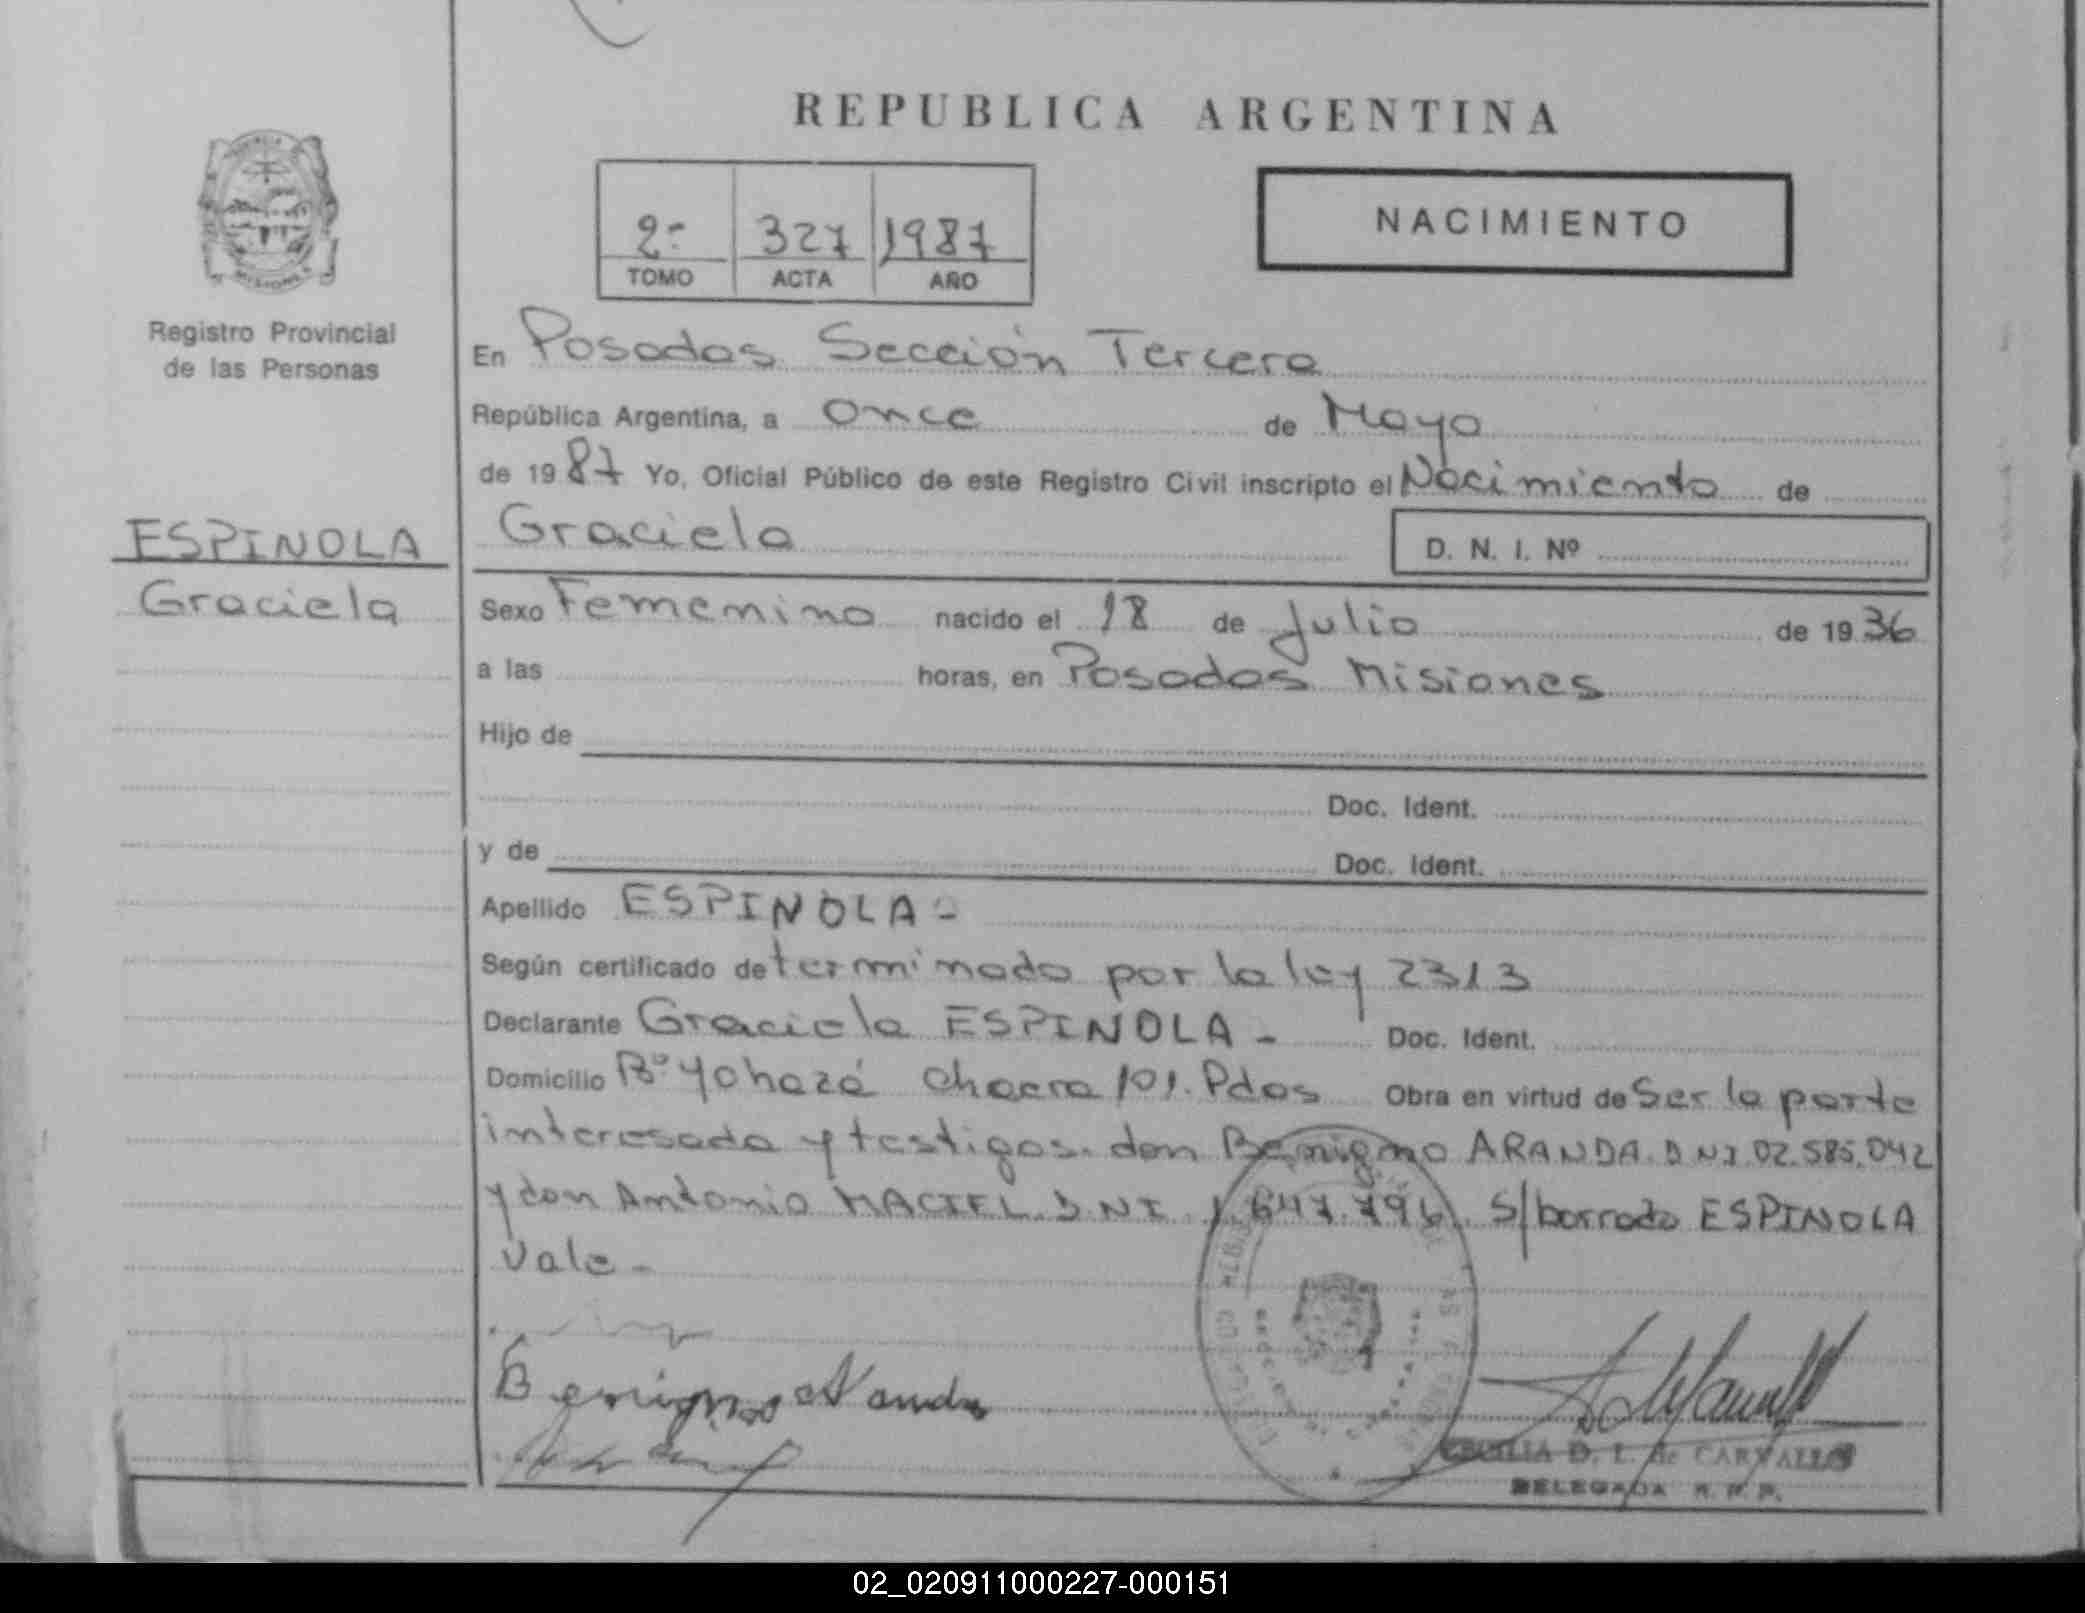 REPUBLICA ARGENTINA
2º 327 1987
TOMO ACTA AÑO
NACIMIENTO
Registro Provincial
de las Personas
En Posadas Sección Tercera
República Argentina, a once de Mayo
de 1987 Yo, Oficial Público de este Registro Civil inscripto el Nacimiento de
ESPINOLA
Graciela
Graciela D. N. I. Nº
Sexo Femenino nacido el 18 de Julio de 1936
a las horas, en Posadas Misiones
Hijo de
Doc. Ident.
y de Doc. Ident.
Apellido ESPINOLA -
Según certificado determinado por la ley 2313
Declarante Graciela ESPINOLA - Doc. Ident.
Domicilio Bº Yohazá Chacra 101. Pdas Obra en virtud de Ser la parte
interesada y testigos. don Benigno ARANDA. DNI 02.585.042
y don Antonio MACIEL DNI 1.647.796. S/borrado ESPINOLA
Vale -
Benigno Aranda
CECILIA D. L. de CARVALLO
DELEGADA R. P. P.
02_020911000227-000151